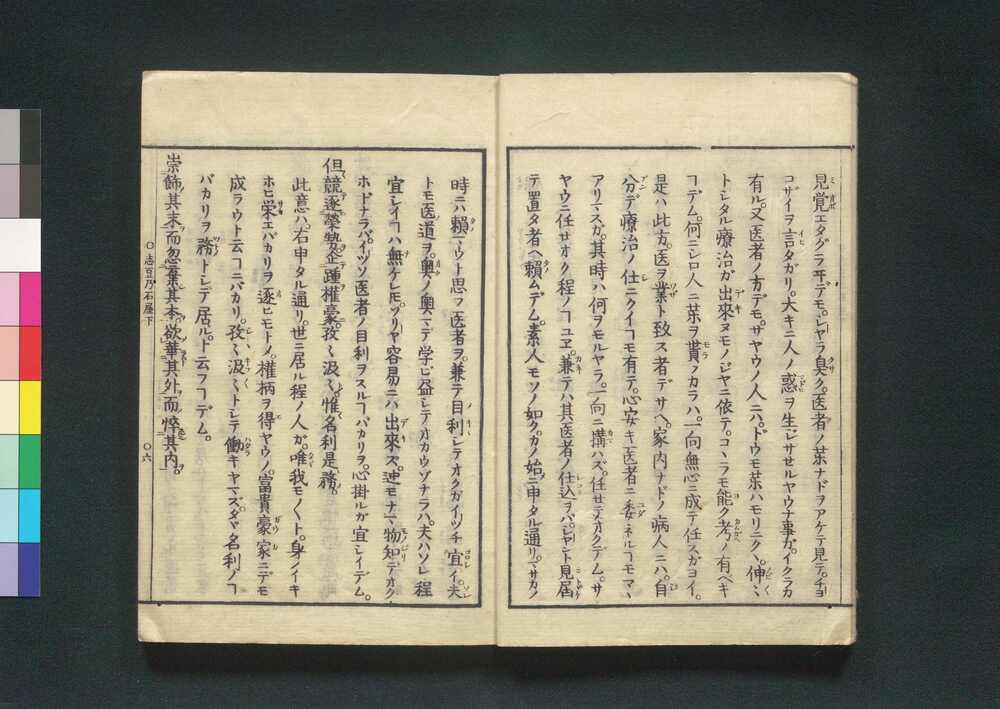 見覚エタグラ井デモ。シヤラ臭ク。医者ノ薬ナドヲアケテ見テ。チヨ
コザイヲ言タガリ。大キニ人ノ惑ヲ生ジサセルヤウナ事ガ。イクラカ
有ル。又医者ノ方デモ。ザヤウノ人ニハ。ドウモ薬ハモリニクヽ。伸〻
トシタル療治ガ出來ヌモノジヤニ依テ。コヽラモ能ク考ノ有ベキ
ヿデム。何ニシロ人ニ薬ヲ貰フカラハ。一向無心ニ成テ任スガヨイ。
是ハ此方。医ヲ業ト致ス者デサヘ。家内ナドノ病人ニハ。自
分デ療治ノ仕ニクイヿモ有テ。心安キ医者ニ委ネルヿモマヽ
アリマスガ。其時ハ何ヲモルヤラ。一向ニ搆ハズ。任セテオクデム。サ
ヤウニ任セオク程ノヿユヱ。兼テハ其医者ノ仕込ヲバ。シヤント見届
テ置タ者ヘ頼ムデム。素人モソノ如ク。カノ始ニ申タル通リ。マサカノ
時ニハ頼マウト思フ医者ヲ。兼テ目利シテオクガイツチ宜イ。夫
トモ医道ヲ。奥ノ奥マデ学ビ益シテオカウゾナラハ。夫ハソレ程
宜シイヿハ無ケレドモ。ヅリヤ容易ニハ出來ズ。迚モナマ物知デオク
ホドナラバ。イツソ医者ノ目利ヲスルヿバカリヲ。心掛ルガ宜シイデム。
但競逐榮勢。企踵權豪。孜〻汲〻。惟名利是務。
此意ハ。右申タル通リ。世ニ居ル程ノ人ガ。唯我モ〳〵ト。身ノイキ
ホヒ栄エバカリヲ逐ヒモトメ。權柄ヲ得ヤウノ。富貴豪家ニデモ
成ラウト云コニバカリ。孜〻汲〻トシテ働キヤマズ。タヾ名利ノヿ
バカリヲ務トシテ居ルト云フヿデム。
崇飾其末。而忽棄其本。欲華其外。而悴其内。
○志豆乃石屋下
○六